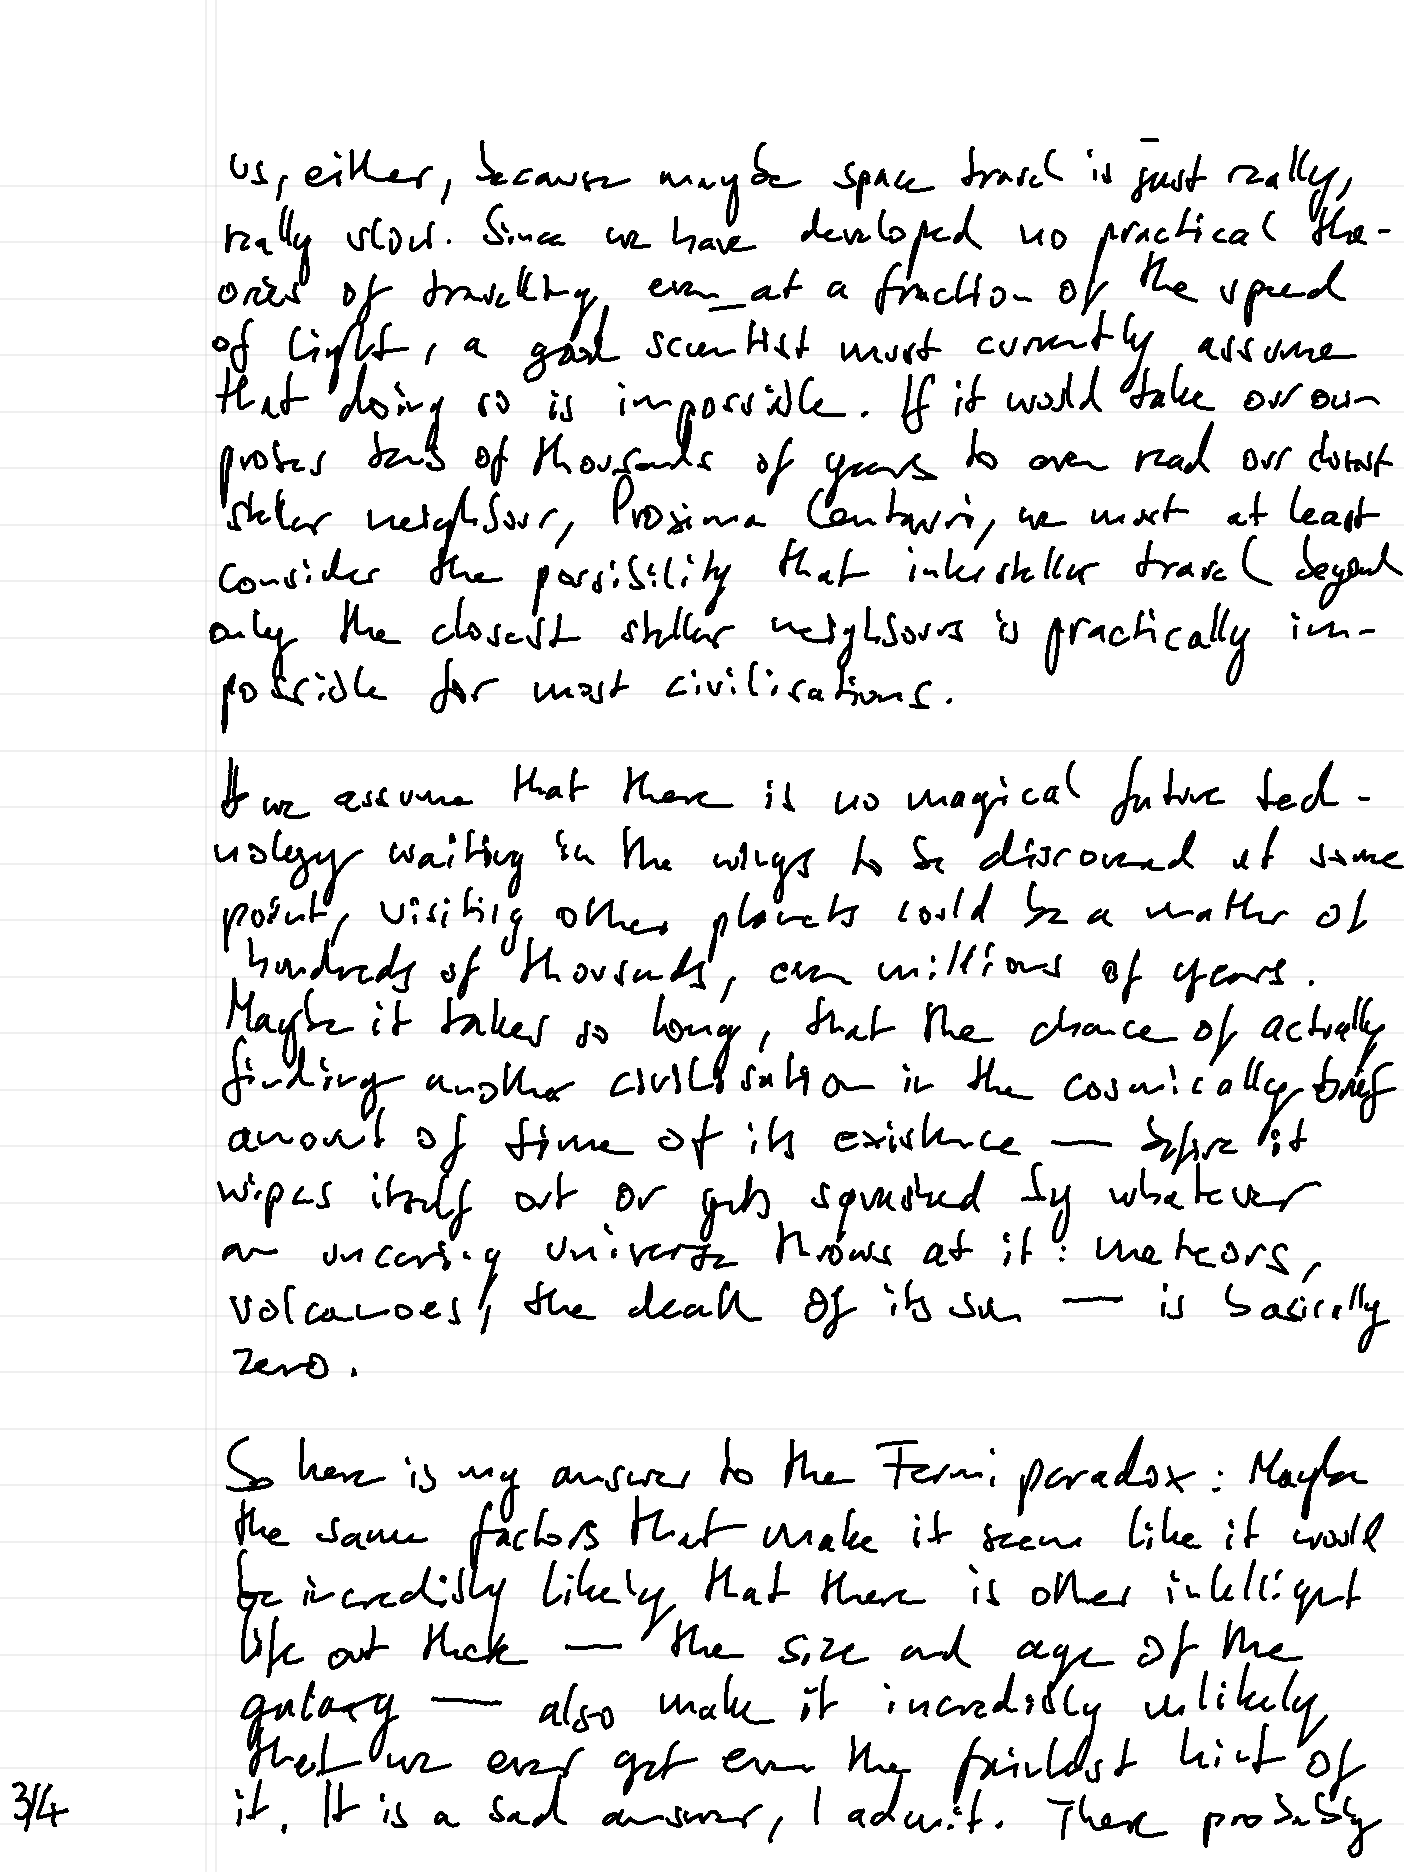 us, either, because maybe space travel is just really,
really slow. Since we have developed no practical the-
ories of travelling even at a fraction of the speed
of light, a good scientist must currently assume
that doing so is impossible. If it would take our own
probes tens of thousands of years to even reach our closest
stellar neighbour, Proxima Centauri, we must at least
consider the possibility that interstellar travel beyond
only the closest stellar neighbours is practically im-
possible for most civilisations.
If we assume that there is no magical future tech-
nology waiting in the wings to be discovered at some
point, visiting other planets could be a matter of
hundreds of thousands, even millions of years.
Maybe it takes so long, that the chance of actually
finding another civilisation in the cosmically brief
amount of time of its existence — before it
wipes itself out or gets squashed by whatever
an uncaring universe throws at it: meteors,
volcanoes, the death of its sun — is basically
zero.
So here is my answer to the Fermi paradox: Maybe
the same factors that make it seem like it would
be incredibly likely that there is other intelligent
life out there — the size and age of the
galaxy — also make it incredibly unlikely
that we ever get even the faintest hint of
it. It is a sad answer, I admit. There probably
3/4